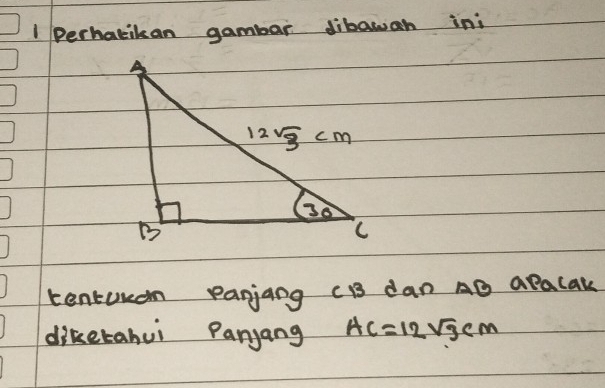 1 Perhatikan gambar dibawah ini
A
12√3 cm
30
B
C
tentukan panjang CB dan AB apacak
diketahui Panjang AC=12√3cm